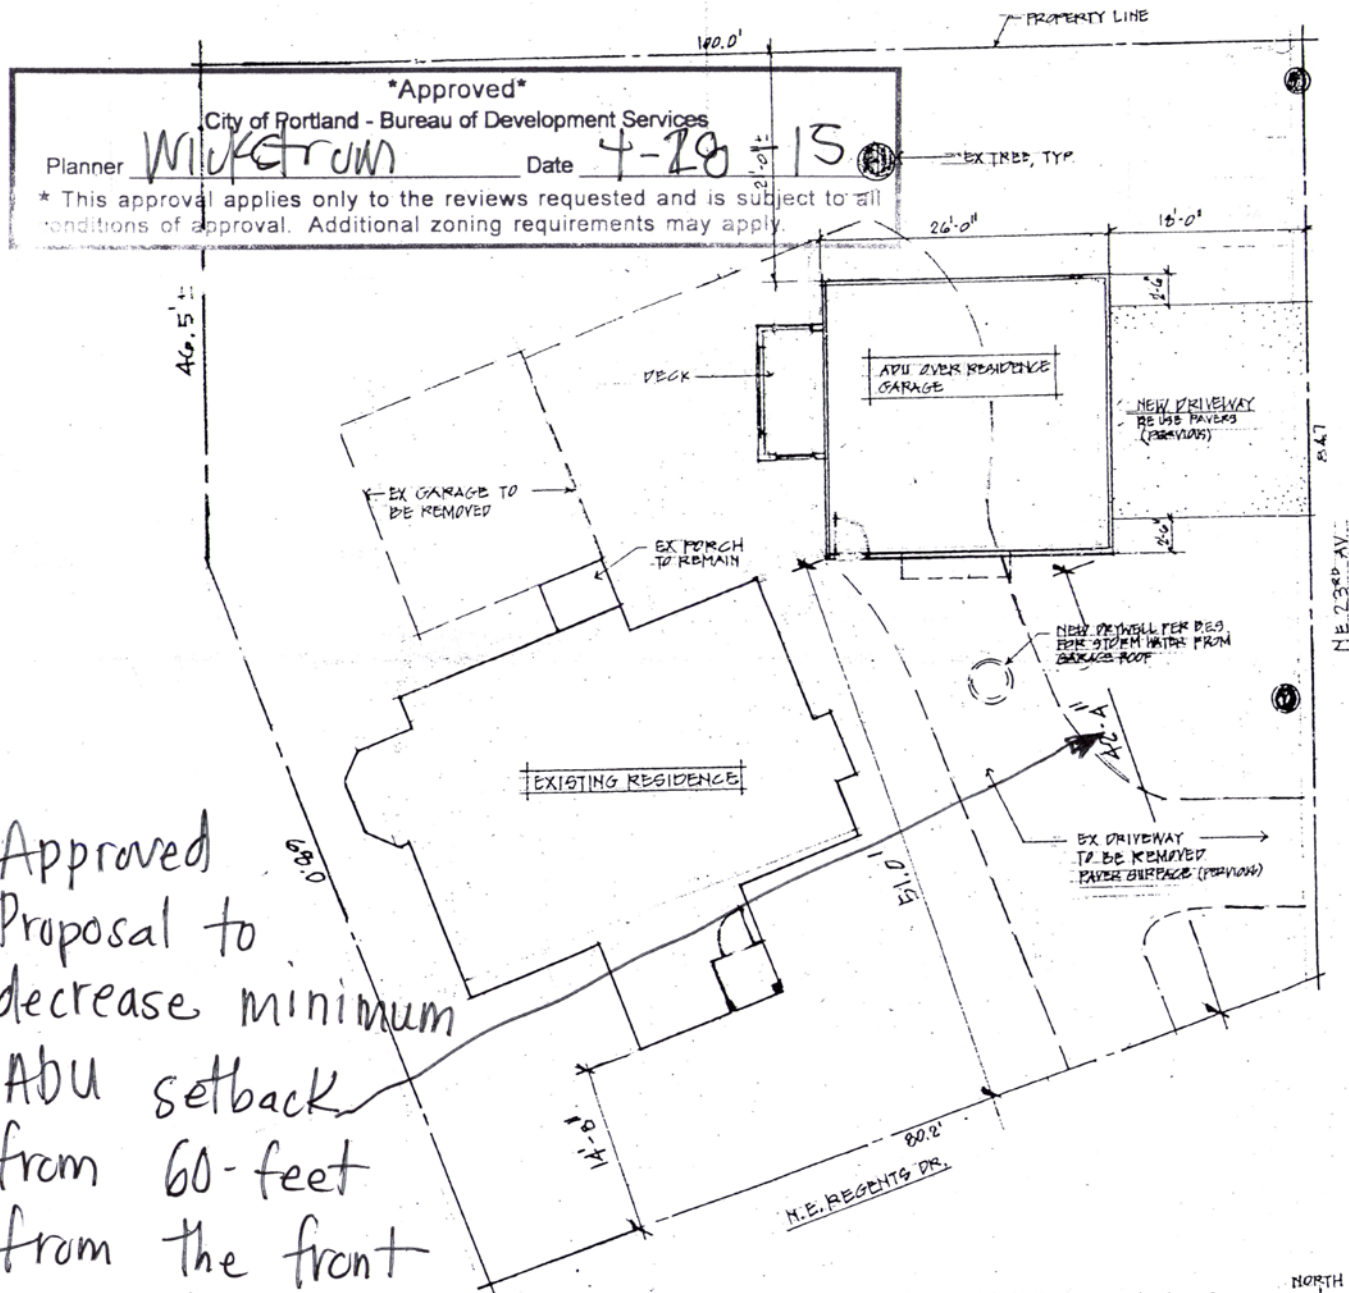 PROPERTY LINE
100.0'
*Approved*
City of Portland - Bureau of Development Services
Planner Wickstrom Date 4-28-15
* This approval applies only to the reviews requested and is subject to all
conditions of approval. Additional zoning requirements may apply.
21'-0"±
EX TREE, TYP.
26'-0"
18'-0"
46.5'±
2'-6"
DECK
ADU OVER RESIDENCE
GARAGE
NEW DRIVEWAY
RE USE PAVERS
(PERVIOUS)
84.7
EX GARAGE TO
BE REMOVED
2'-6"
EX PORCH
TO REMAIN
N.E. 23RD AV.
NEW DRYWELL PER B.E.S.
FOR STORM WATER FROM
GARAGE ROOF
42'-A"
EXISTING RESIDENCE
68.0
51.0'
EX DRIVEWAY
TO BE REMOVED
PAVER SURFACE (PERVIOUS)
Approved
Proposal to
decrease minimum
ADU setback
from 60-feet
from the front
14'-8"
80.2'
N.E. REGENTS DR.
NORTH